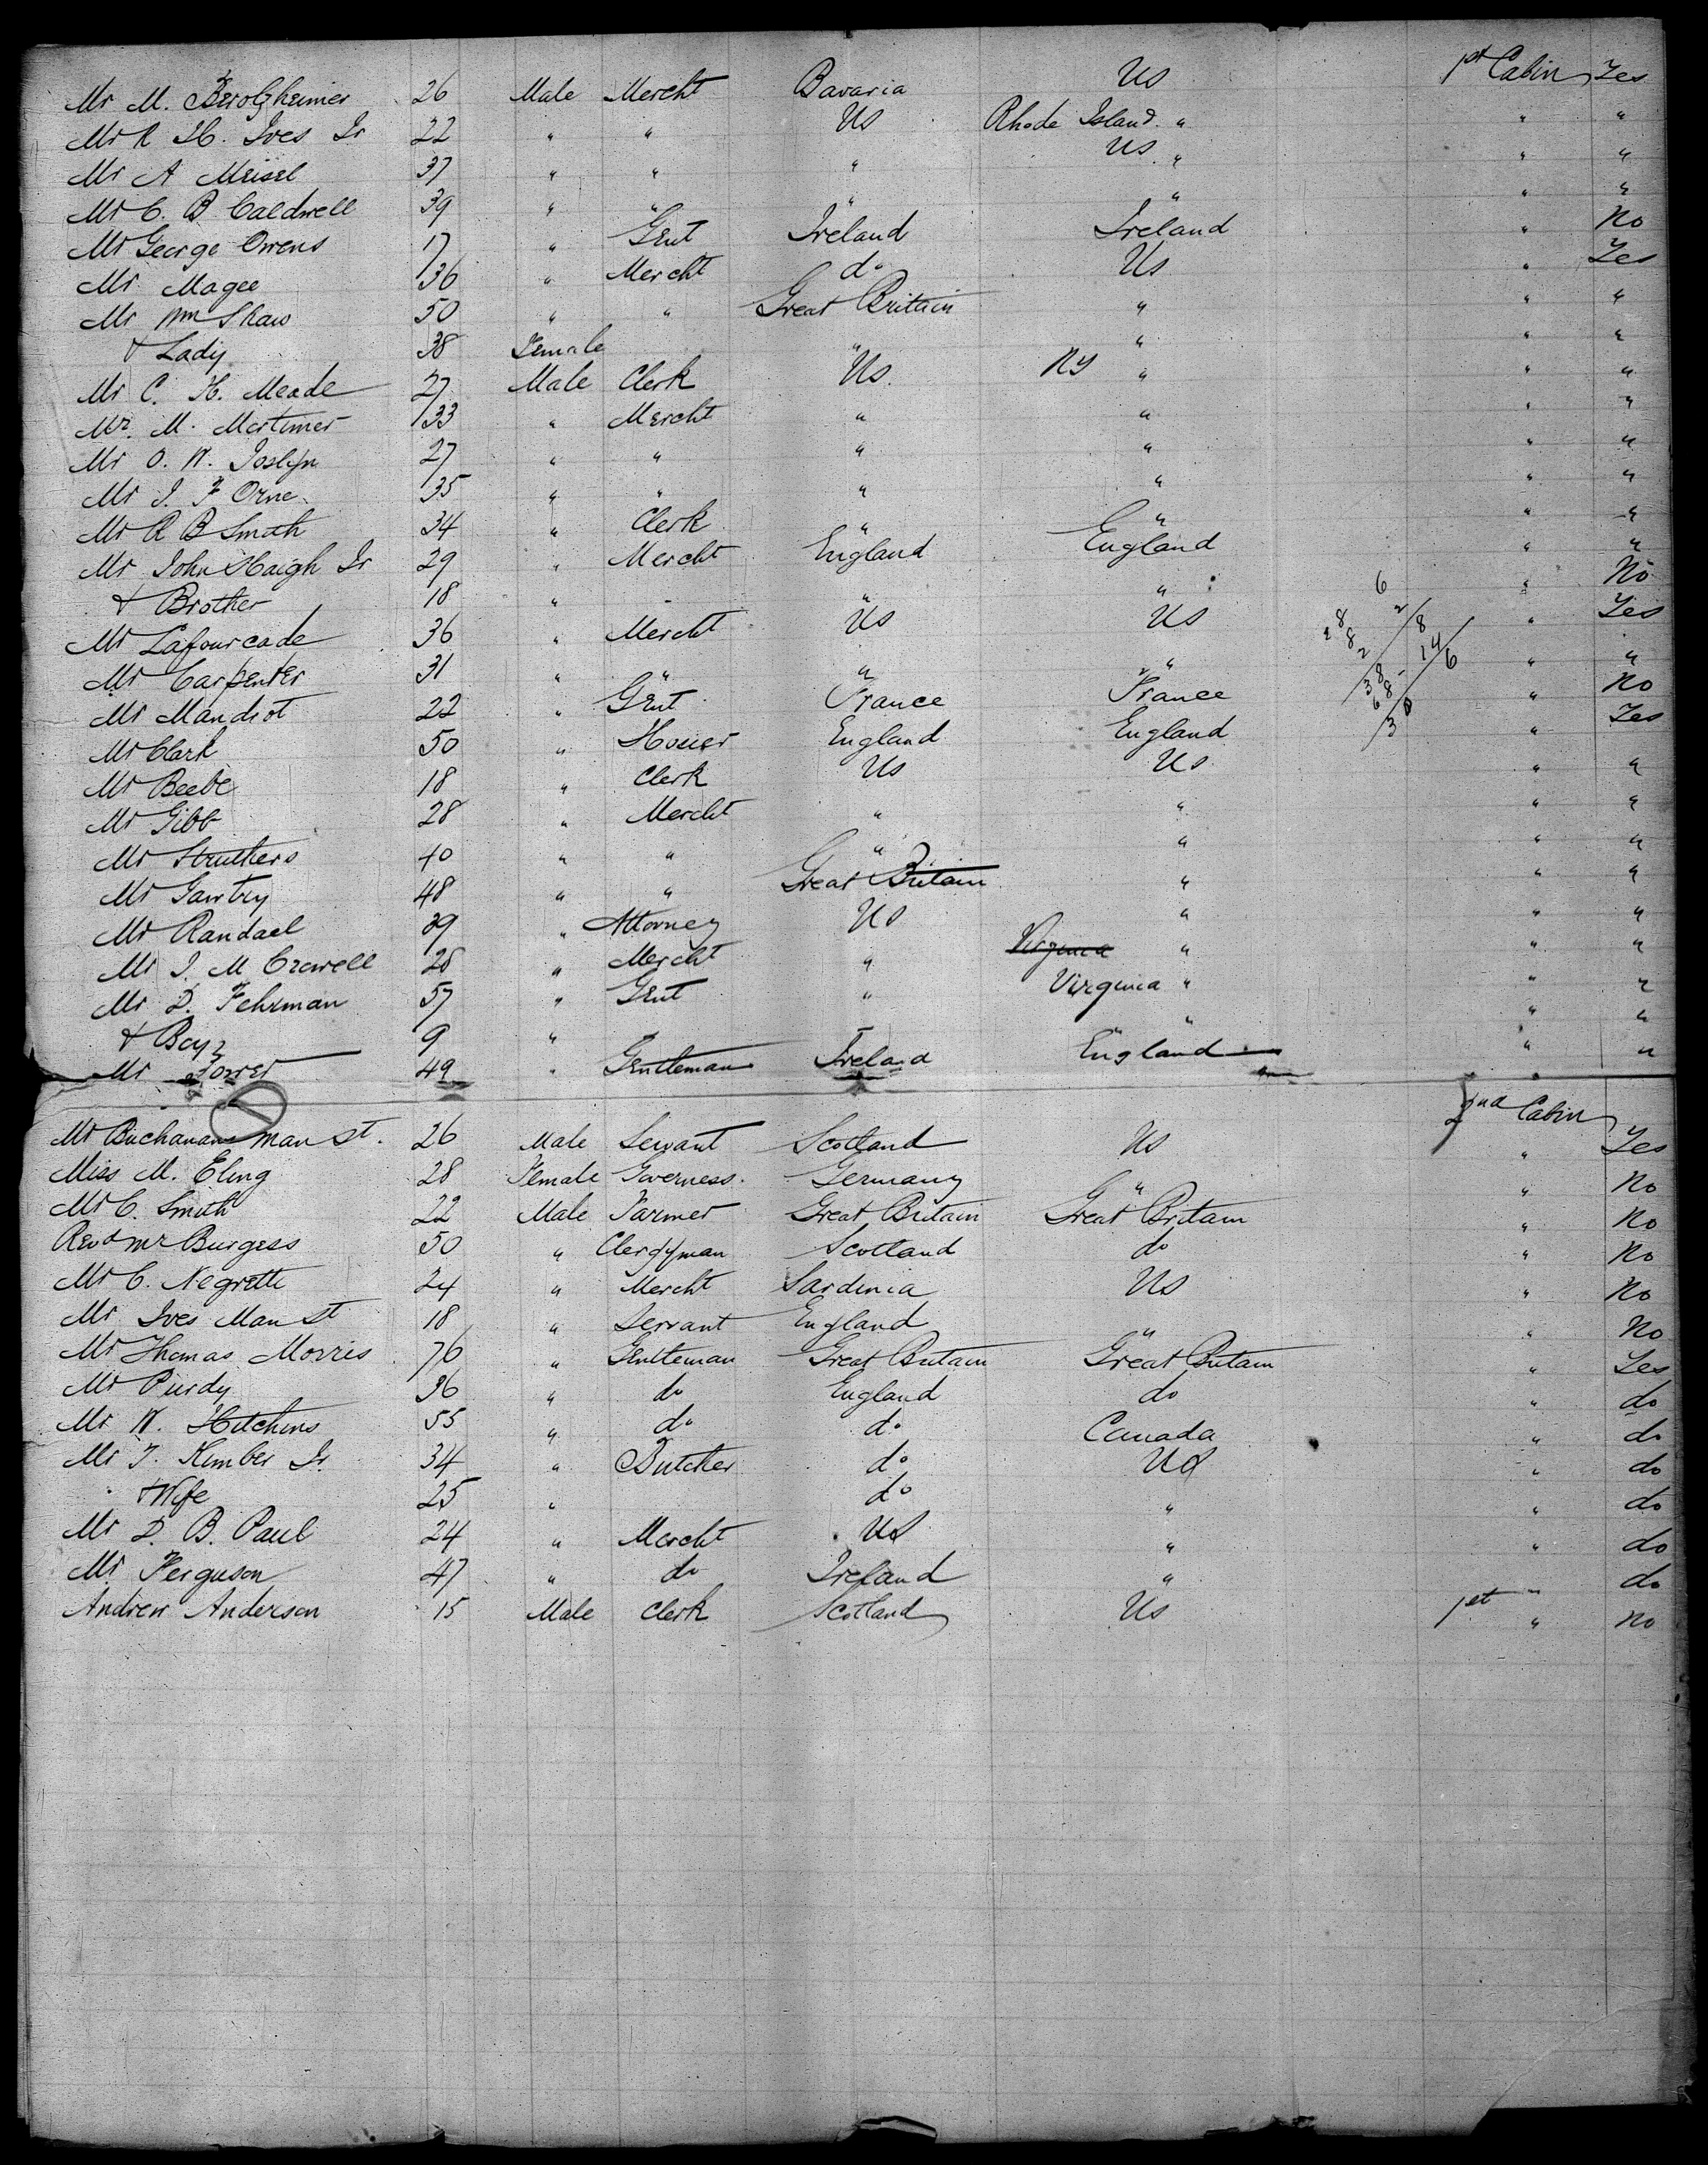 Mr M. Berolzheimer 26 Male Mercht Bavaria US 1st Cabin Yes
Mr R H. Ives Jr 22 " " US Rhode Island " " "
Mr A Meisel 37 " " " US " " "
Mr C. B Caldwell 39 " " " " " "
Mr George Owens 17 " Gent Ireland Ireland " No
Mr Magee 36 " Mercht do US " Yes
Mr Wm Shaw 50 " " Great Britain " " "
& Lady 38 Female " " " "
Mr C. H. Meade 27 Male Clerk US NY " " "
Mr. M. Mortimer 33 " Mercht " " " "
Mr O. W. Joslyn 27 " " " " " "
Mr J. F Orne 35 " " " " " "
Mr R B Smith 34 " Clerk " " " "
Mr John Haigh Jr 29 " Mercht England England " "
& Brother 18 " " " " No
Mr Lafourcade 36 " Mercht US US " Yes
Mr Carpenter 31 " " " " " "
Mr Mandrot 22 " Gent France France " No
Mr Clark 50 " Hosier England England " Yes
Mr Beebe 18 " Clerk US US " "
Mr Gibb 28 " Mercht " " " "
Mr Struthers 40 " " " " " "
Mr Gawtry 48 " " Great Britain " " "
Mr Randael 39 " Attorney US " " "
Mr J. M Crowell 28 " Mercht " Virginia " " "
Mr D. Fehrman 57 " Gent " Virginia " " "
& Boy 9 " " " " "
Mr Forrer 49 " Gentleman Ireland England " "
2nd Cabin
Mr Buchanans man st. 26 Male Servant Scotland US " Yes
Miss M. Eling 28 Female Governess. Germany " " No
Mr C. Smith 22 Male Farmer Great Britain Great Britain " No
Revd Mr Burgess 50 " Clergyman Scotland do " No
Mr C. Negrette 24 " Mercht Sardinia US " No
Mr Ives Man st 18 " Servant England " " No
Mr Thomas Morris 76 " Gentleman Great Britain Great Britain " Yes
Mr Purdy 36 " do England do " do
Mr W. Hitchins 55 " do do Canada " do
Mr T. Kimber Jr 34 " Butcher do US " do
& Wife 25 " do " " do
Mr D. B. Paul 24 " Mercht US " " do
Mr Ferguson 47 " do Ireland " " do
Andrew Anderson 15 Male Clerk Scotland US 1st " No